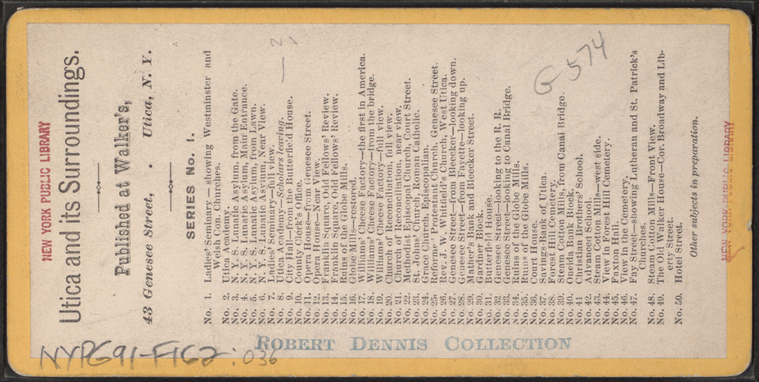 NEW YORK PUBLIC LIBRARY
Utica and its Surroundings.
Published at Walker's,
43 Genesee Street, . Utica, N. Y.
SERIES No. 1.
No. 1. Ladies' Seminary — showing Westminster and
Welsh Con. Churches.
No. 2. Utica Academy.
No. 3. N. Y. S. Lunatic Asylum, from the Gate.
No. 4. N. Y. S. Lunatic Asylum, Main Entrance.
No. 5. N. Y. S. Lunatic Asylum, from Lawn.
No. 6. N. Y. S. Lunatic Asylum, Near View.
No. 7. Ladies' Seminary—full view.
No. 8. Utica Academy—Scholars leaving.
No. 9. City Hall—from the Butterfield House.
No. 10. County Clerk's Office.
No. 11. Opera House—from Genesee Street.
No. 12. Opera House, Near View.
No. 13. Franklin Square, Odd Fellows' Review.
No. 14. Franklin Square, Odd Fellows' Review.
No. 15. Ruins of the Globe Mills.
No. 16. Globe Mills—restored.
No. 17. Williams' Cheese Factory—the first in America.
No. 18. Williams' Cheese Factory—from the bridge.
No. 19. Williams' Cheese Factory—full view.
No. 20. Church of Reconciliation, full view.
No. 21. Church of Reconciliation, near view.
No. 22. Methodist Episcopal Church, Court Street
No. 23. St. Johns' Church, Roman Catholic.
No. 24. Grace Church, Episcopalian.
No. 25. Reforme' Protestant Church, Genesee Street.
No. 26. Rev. J. W. Whitfield's Church, West Utica.
No. 27. Genesee Street—from Bleecker—looking down.
No. 28. Genesee Street—from Fayette—looking up.
No. 29. Mather's Bank and Bleecker Street.
No. 30. Gardner Block.
No. 31. Butterfield House.
No. 32. Genesee Street—looking to the R. R.
No. 33. Genesee Street—looking to Canal Bridge.
No. 34. Ruins of the Globe Mills.
No. 35. Ruins of the Globe Mills.
No. 36. Court House.
No. 37. Savings Bank of Utica.
No. 38. Forest Hill Cemetery.
No. 39. Steam Cotton Mills, from Canal Bridge.
No. 40. Oneida Bank Block.
No. 41 Christian Brothers' School.
No. 42. Advanced School.
No. 43. Steam Cotton Mills—west side.
No. 44. View in Forest Hill Cemetery.
No. 45. Faxton Hall.
No. 46. View in the Cemetery.
No. 47. Fay Street—showing Lutheran and St. Patrick's
Churches.
No. 48. Steam Cotton Mills—Front View.
No. 49. The Old Baker House—Cor. Broadway and Lib-
erty Street.
No. 50. Hotel Street.
Other subjects in preparation.
NEW YORK PUBLIC LIBRARY
21
G 574
ROBERT DENNIS COLLECTION
NYPG91-F162 : 036